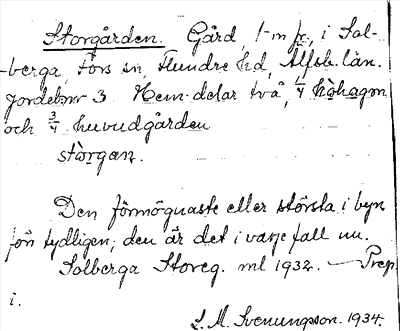 Storgården. Gård, 1-m fr., i Sol-
-berga, Fors sn, Flundre hd, Älfsb. län.
Jordeboksnr 3. Hem-delar två, 1/4 håhagen
och 3/4 huvudgården
stòrgan.
Den förmögnaste eller största i byn
förr tydligen; den är det i varje fall nu.
Solberga Storeg. ml 1932. — Prep.
i.
L. M. Svenungsson. 1934.